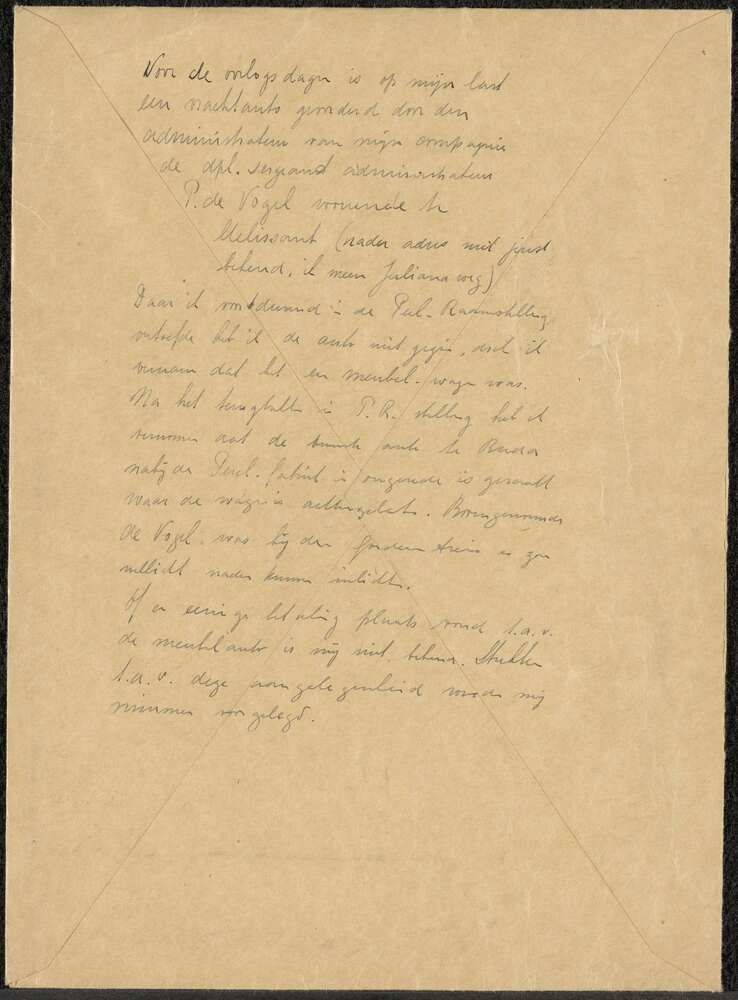 Voor de oorlogsdagen is op mijn last
een vrachtauto gevorderd door den
administrateur van mijn compagnie
de dpl. sergeant administrateur
P. de Vogel wonende te
Melissant (nader adres niet juist
bekend, ik meen Julianaweg)
Daar ik voortdurend in de Peel-Raamstelling
vertoefde heb ik de auto niet gezien, doch ik
vernam dat het een meubel-wagen was.
Na het terugtrekken in P.R. stelling heb ik
vernomen dat de auto te Breda
nabij de fabriek in ongerede is geraakt
waar de wagen is achtergelaten. Bovengenoemde
de Vogel was bij den trein en zou
wellicht nader kunnen inlichten.
Of er eenige betaling plaats vond t.a.v.
de meubelauto is mij niet bekend. Stukken
t.a.v. deze aangelegenheid werden mij
nimmer voorgelegd.